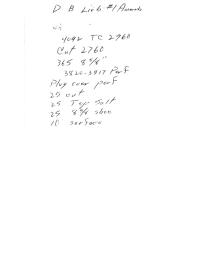 D B Lieb #1 Amends
4092 TC 2960
Cut 2760
365 8 5/8"
3820-3917 Perf
Plug over perf
25 out
25 Top Salt
25 8 5/8 shoe
10 surface